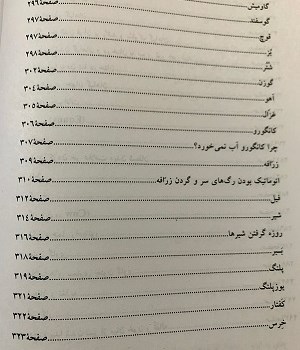 گاومیش ........ صفحهٔ ۲۹۶
گوسفند ........ صفحهٔ ۲۹۷
قوچ ........ صفحهٔ ۲۹۷
بُز ........ صفحهٔ ۲۹۸
شُتُر ........ صفحهٔ ۳۰۲
گوزن ........ صفحهٔ ۳۰۴
آهو ........ صفحهٔ ۳۰۵
غزال ........ صفحهٔ ۳۰۶
کانگورو ........ صفحهٔ ۳۰۶
چرا کانگورو آب نمی‌خورد؟ ........ صفحهٔ ۳۰۷
زرافه ........ صفحهٔ ۳۰۹
اتوماتیک بودن رگ‌های سر و گردن زرافه ........ صفحهٔ ۳۱۰
فیل ........ صفحهٔ ۳۱۲
شیر ........ صفحهٔ ۳۱۴
روزه گرفتن شیرها ........ صفحهٔ ۳۱۶
ببر ........ صفحهٔ ۳۱۸
پلنگ ........ صفحهٔ ۳۱۹
یوزپلنگ ........ صفحهٔ ۳۲۱
کفتار ........ صفحهٔ ۳۲۲
خرس ........ صفحهٔ ۳۲۳